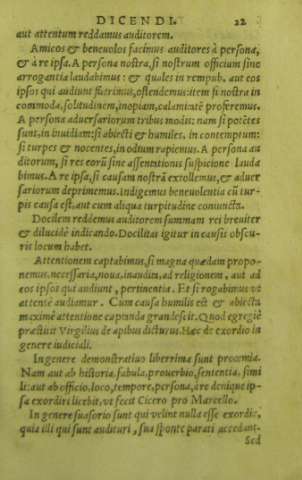 DICENDI. 22
aut attentum reddamus auditorem.
Amicos & beneuolos facimus auditores à persona,
& à re ipsa. A persona nostra, si nostrum officium sine
arrogantia laudabimus: & quales in rempub. aut eos
ipsos qui audiunt fuerimus, ostendemus: item si nostra in
commoda, solitudinem, inopiam, calamitatē proferemus.
A persona aduersariorum tribus modis: nam si potētes
sunt, in inuidiam: si abiecti & humiles, in contemptum:
si turpes & nocentes, in odium rapiemus. A persona au
ditorum, si res eorū sine assentationis suspicione lauda
bimus. A re ipsa, si causam nostrā extollemus, & aduer
sariorum deprimemus. Indigemus beneuolentia cū tur-
pis causa est, aut cum aliqua turpitudine coniuncta.
Docilem reddemus auditorem summam rei breuiter
& dilucidè indicando. Docilitas igitur in causis obscu-
ris locum habet.
Attentionem captabimus, si magna quædam propo-
nemus, necessaria, noua, inaudita, ad religionem, aut ad
eos ipsos qui audiunt, pertinentia. Et si rogabimus vt
attentè audiamur. Cum causa humilis est & abiecta
maximè attentione captanda grandescit. Quod egregiè
præstitit Virgilius de apibus dicturus. Hæc de exordio in
genere iudiciali.
In genere demonstratiuo liberrima sunt proœmia.
Nam aut ab historia, fabula, prouerbio, sententia, simi
li: aut ab officio, loco, tempore, persona, à re denique ip-
sa exordiri licebit, vt fecit Cicero pro Marcello.
In genere suasorio sunt qui velint nulla esse exordia,
quia illi qui sunt audituri, sua sponte parati accedant.
Sed